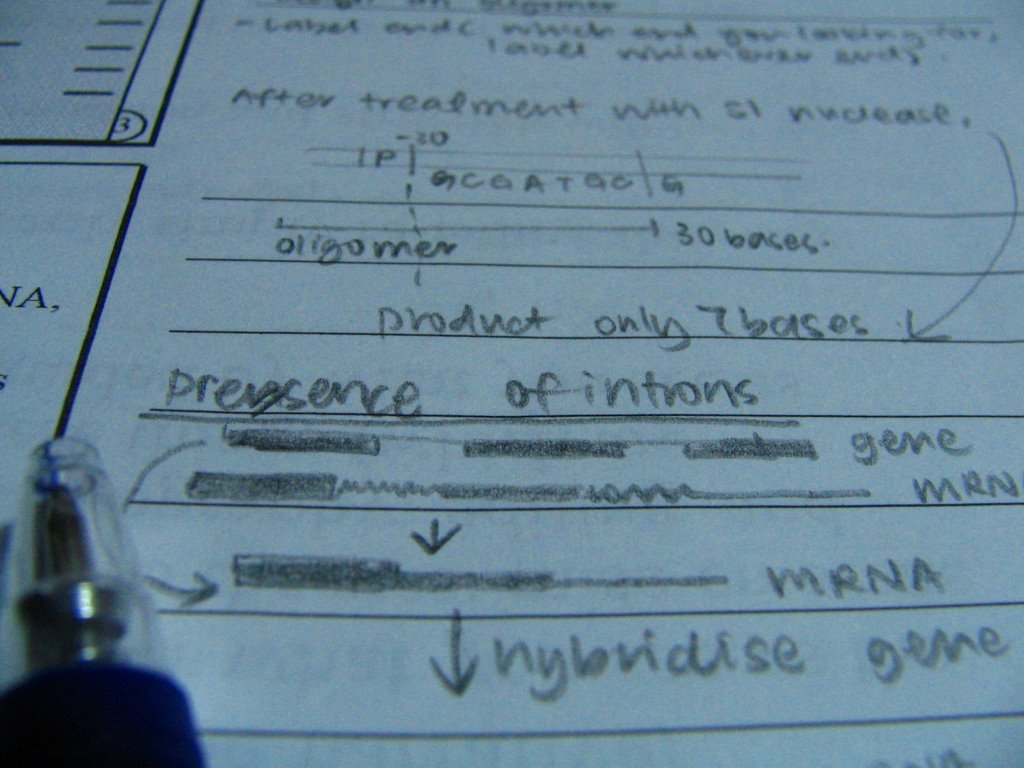 - Label end(, which end you looking for,
label whichever end).
After treatment with S1 nuclease,
-20
P
GCGATGC G
oligomer 30 bases.
product only 7 bases
presence of introns
gene
mRN
mRNA
hybridise gene
3
NA,
s